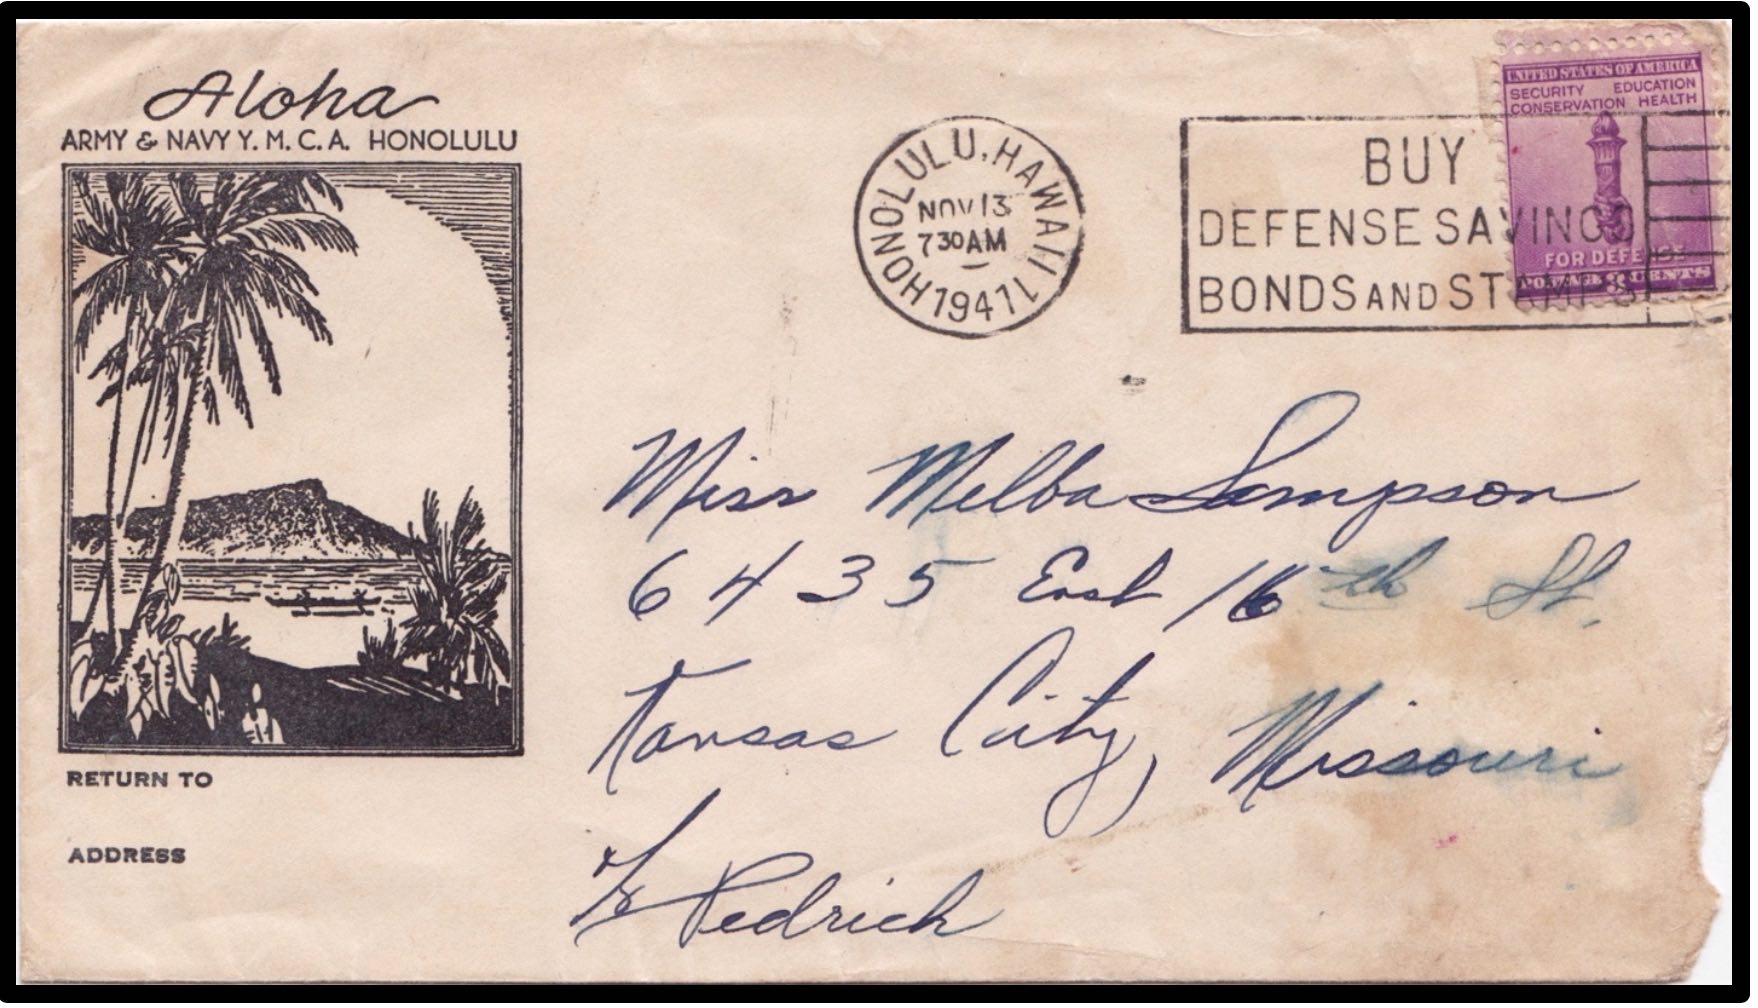 Aloha
ARMY & NAVY Y. M. C. A. HONOLULU
RETURN TO
ADDRESS
HONOLULU, HAWAII
NOV 13
7 30 AM
1941
BUY
DEFENSE SAVINGS
BONDS AND STAMPS
UNITED STATES OF AMERICA
SECURITY EDUCATION
CONSERVATION HEALTH
FOR DEFENSE
POSTAGE 3 CENTS
Miss Melba Sampson
6435 East 16th St.
Kansas City, Missouri
% Pedrick